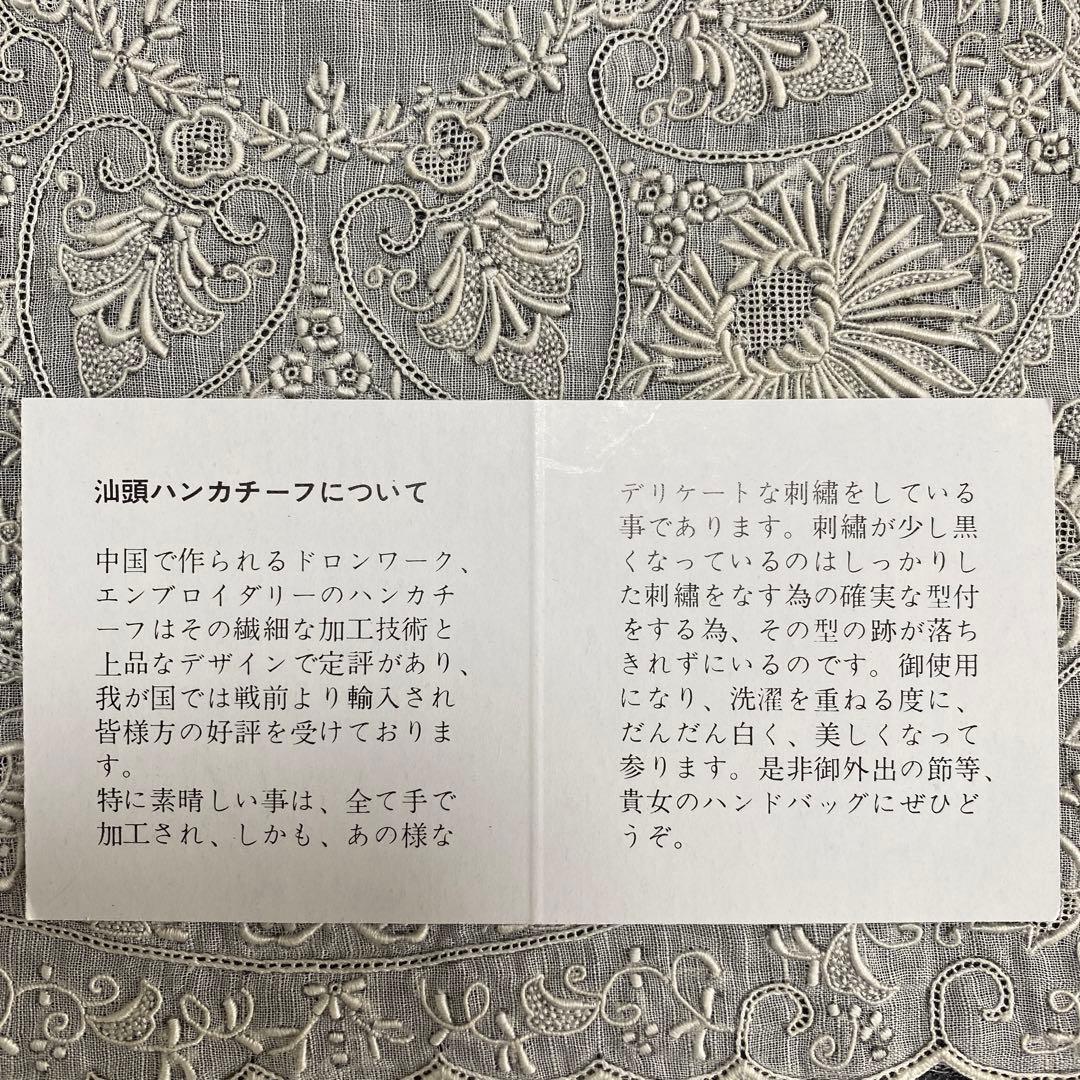 汕頭ハンカチーフについて
中国で作られるドロンワーク、
エンブロイダリーのハンカチ
ーフはその繊細な加工技術と
上品なデザインで定評があり、
我が国では戦前より輸入され
皆様方の好評を受けておりま
す。
特に素晴しい事は、全て手で
加工され、しかも、あの様な
デリケートな刺繡をしている
事であります。刺繡が少し黒
くなっているのはしっかりし
た刺繡をなす為の確実な型付
をする為、その型の跡が落ち
きれずにいるのです。御使用
になり、洗濯を重ねる度に、
だんだん白く、美しくなって
参ります。是非御外出の節等、
貴女のハンドバッグにぜひど
うぞ。